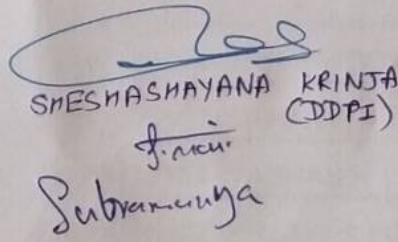 SHESHASHAYANA KRINJA
(DDPI)
Subramanya